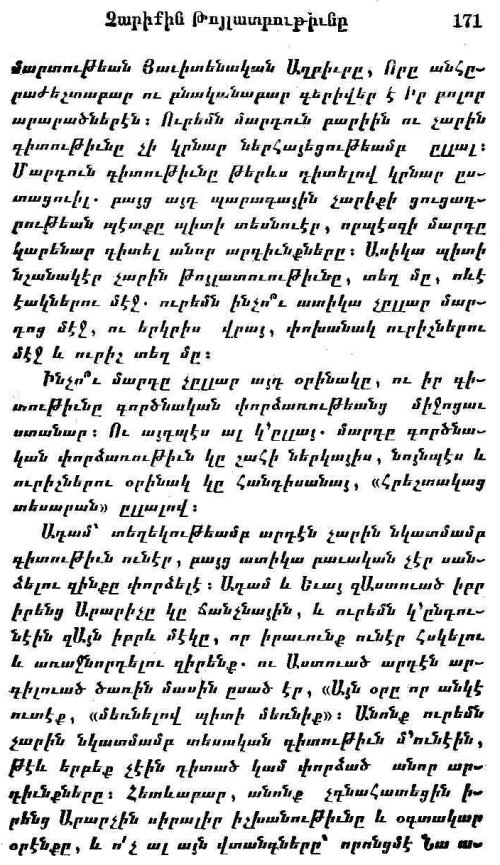 Չարիքին Թոյլատրութիւնը 171
մարտութեան Յաւիտենական Աղբիւրը, Որը անհը-
րաժեշտաբար ու բնականաբար գերիվեր է Իր բոլոր
արարածներէն։ Ուրեմն մարդուն բարիին ու չարին
գիտութիւնը չի կրնար ներհայեցութեամբ ըլլալ։
Մարդուն գիտութիւնը թերևս դիտելով կրնար ըս-
տացուիլ. բայց այդ պարագային չարիքի ցուցադ-
րութեան պէտքը պիտի տեսնուէր, որպէսզի մարդը
կարենար դիտել անոր արդիւնքները։ Ասիկա պիտի
նշանակէր չարին թոյլատուութիւնը, տեղ մը, ոևէ
էակներու մէջ. ուրեմն ինչո՞ւ ատիկա չըլլար մար-
դոց մէջ, ու երկրիս վրայ, փոխանակ ուրիշներու
մէջ և ուրիշ տեղ մը։
Ինչո՞ւ մարդը չըլլար այդ օրինակը, ու իր գի-
տութիւնը գործնական փորձառութեանց միջոցաւ
ստանար։ Ու այդպէս ալ կ'ըլլայ. մարդը գործնա-
կան փորձառութիւն կը շահի ներկայիս, նոյնպէս և
ուրիշներու օրինակ կը հանդիսանայ, «Հրեշտակաց
տեսարան» ըլլալով։
Ադամ՝ տեղեկութեամբ արդէն չարին նկատմամբ
գիտութիւն ունէր, բայց ատիկա բաւական չէր սան-
ձելու զինքը փորձելէ։ Ադամ և Եւայ զԱստուած իբր
իրենց Արարիչը կը ճանչնային, և ուրեմն կ'ընդու-
նէին զԱյն իբրև մէկը, որ իրաւունք ունէր հսկելու
և առաջնորդելու զիրենք. ու Աստուած արդէն ար-
գիլուած ծառին մասին ըսած էր, «Այն օրը որ անկէ
ուտէք, «մեռնելով պիտի մեռնիք»։ Անոնք ուրեմն
չարին նկատմամբ տեսական գիտութիւն մ'ունէին,
թէև երբեք չէին դիտած կամ փորձած անոր ար-
դիւնքները։ Հետևաբար, անոնք չգնահատեցին ի-
րենց Արարչին սիրալիր իշխանութիւնը և օգտակար
օրէնքը, և ո՛չ ալ այն վտանգները՝ որոնցմէ Նա ա-